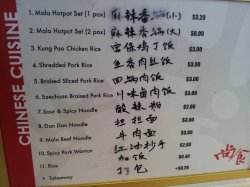 CHINESE CUISINE
1. Mala Hotpot Set (1 pax) 麻辣香锅(小) $3.20
2. Mala Hotpot Set (2 pax) 麻辣香锅(大) $8.00
3. Kung Pao Chicken Rice 宫保鸡丁饭 $3.00
4. Shredded Pork Rice 鱼香肉丝饭 $3.00
5. Braised Sliced Pork Rice 回锅肉饭 $3.00
6. Szechuan Braised Pork Rice 川味卤肉饭 $3.00
7. Sour & Spicy Noodle 酸辣粉 $2.00
8. Dan Dan Noodle 担担面 $2.00
9. Mala Beef Noodle 牛肉面
10. Spicy Pork Wanton 红油抄手
11. Rice 加饭 $0.40
• Takeaway 打包 +$0.20